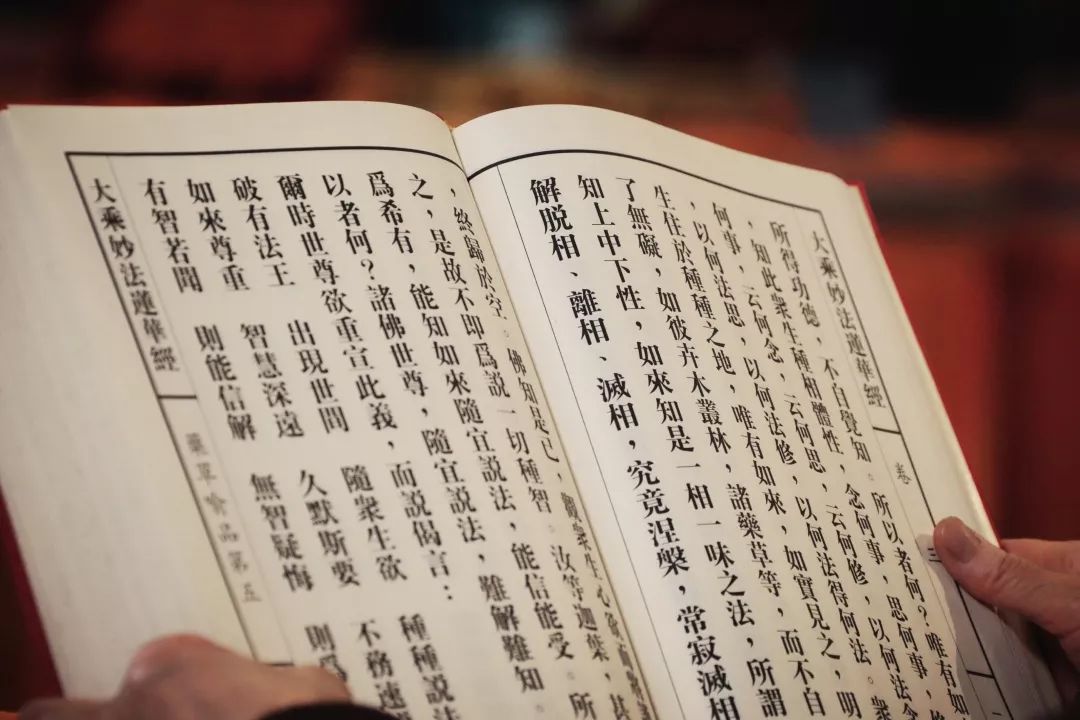 大乘妙法蓮華經 卷
所得功德,不自覺知。所以者何?唯有如
,知此衆生種相體性,念何事,思何事,
何事,云何念,云何思,云何修,以何法念
,以何法思,以何法修,以何法得何法。衆
生住於種種之地,唯有如來,如實見之,明
了無礙,如彼卉木叢林,諸藥草等,而不自
知上中下性,如來知是一相一味之法,所謂
解脫相、離相、滅相,究竟涅槃,常寂滅相
,終歸於空。佛知是已,觀衆生心欲而將護
之,是故不即爲説一切種智。汝等迦葉,甚
爲希有,能知如來隨宜説法,能信能受。所
以者何?諸佛世尊,隨宜説法,難解難知。
爾時世尊欲重宣此義,而説偈言:
破有法王 出現世間 隨衆生欲 種種説法
如來尊重 智慧深遠 久默斯要 不務速
有智若聞 則能信解 無智疑悔 則爲
大乘妙法蓮華經 藥草喻品第五